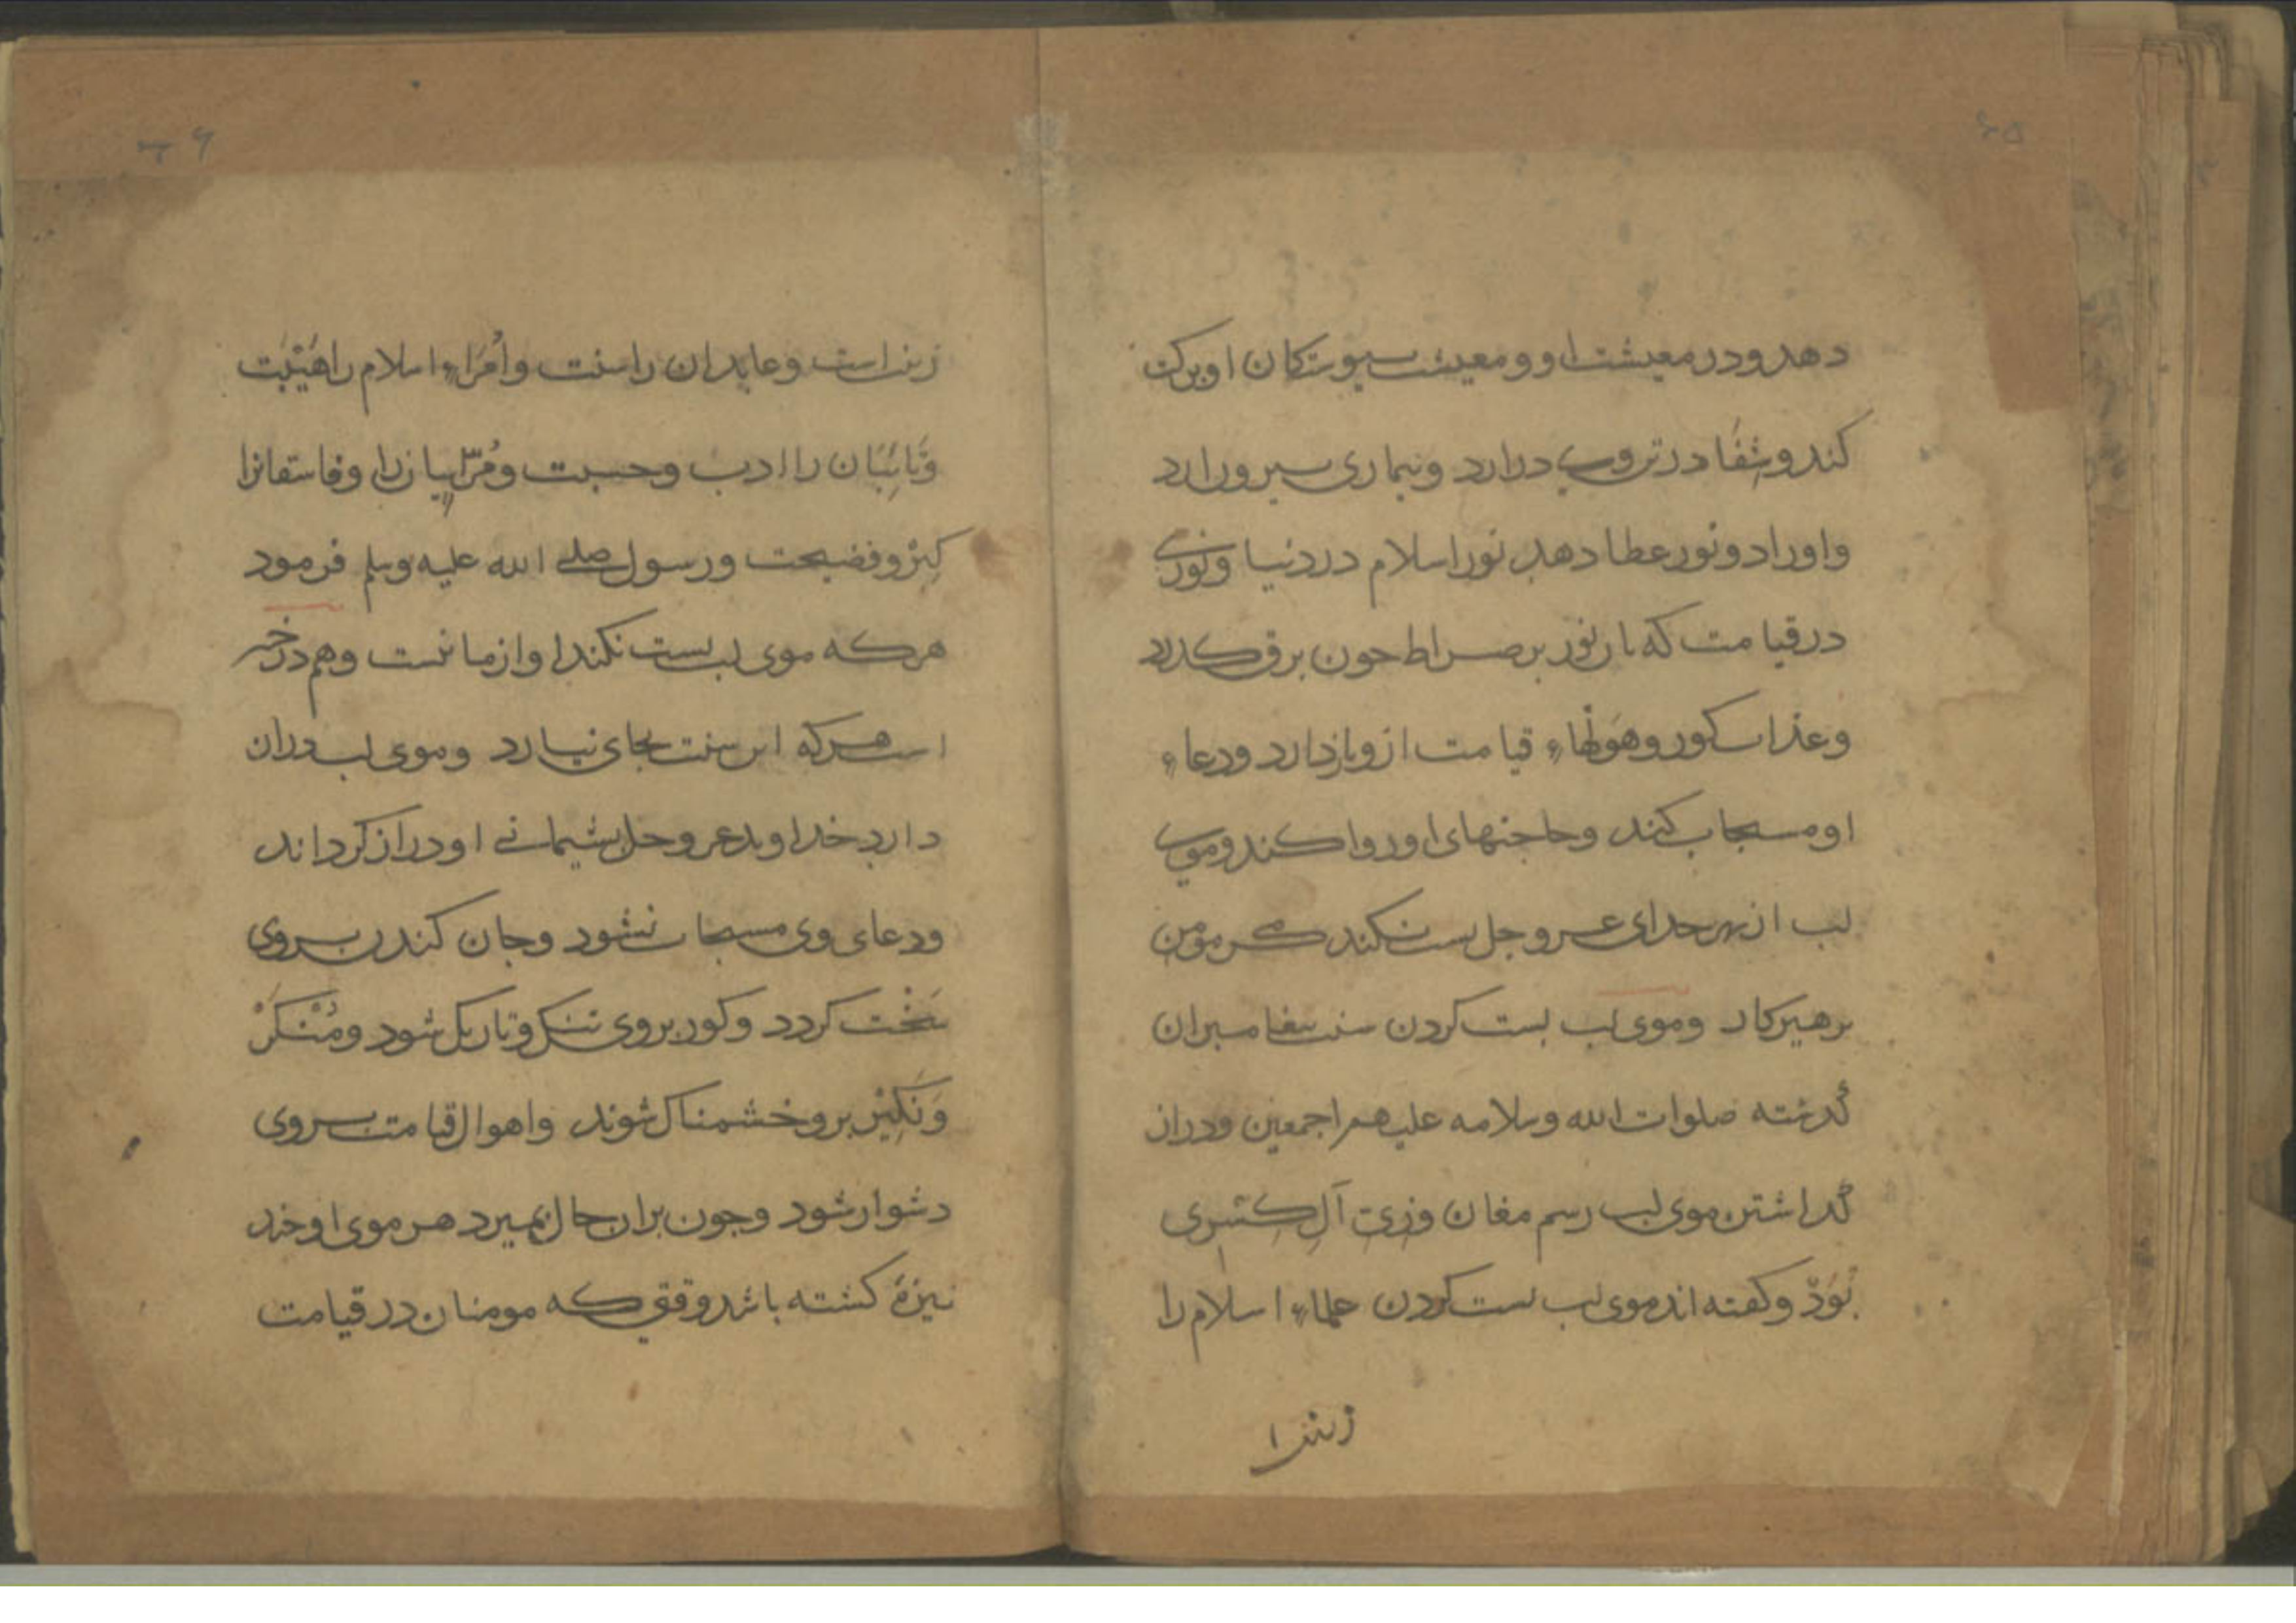 دهد و در معیشت او و معیشت پیوستکان او برکت
کند و شفا در تن وی درارد و بیماری بیرون ارد
و او را دو نور عطا دهد نور اسلام در دنیا و نوری
در قیامت که بان نور بر صراط جون برق کدرد
و عذاب کور و هولهاء قیامت ازو بازدارد و دعاء
او مستجاب کند و حاجتهای او روا کند و موی
لب از بهر خدای عز و جل بست نکند مکر مومن
برهیزکار و موی لب بست کردن سنت بیغامبران
کذشته صلوات الله و سلامه علیهم اجمعین و دراز
کذاشتن موی لب رسم مغان و زیّ آلِ کسری
بُوَذ و کفته اند موی لب بست کردن علماء اسلام را
زینت
زینت است و عابدان را سنت و اُمَراء اسلام را هَیْبَت
و تائِبَان را ادب و حسبت و مُرَاییانرا و فاسقانرا
کبر و فضیحت و رسول صلی الله علیه وسلم فرمود
هرکه موی لب بست نکند او از ما نیست و هم در خبر
است هرکه این سنت بجای نیارد و موی لب دراز
دارد خداوند عز و جل بشیمانی او دراز کرداند
و دعای وی مستجاب نشود و جان کندن بر وی
سَخْت کردد و کور بر وی تنک و تاریک شود و مُنْکَرْ
وَ نَکِیْر برو خشمناک شوند و اهوال قیامت بر وی
دشوار شود و جون بران حال بمیرد هر موی او جند
نیزهٔ کشته باشد وقتی که مومنان در قیامت